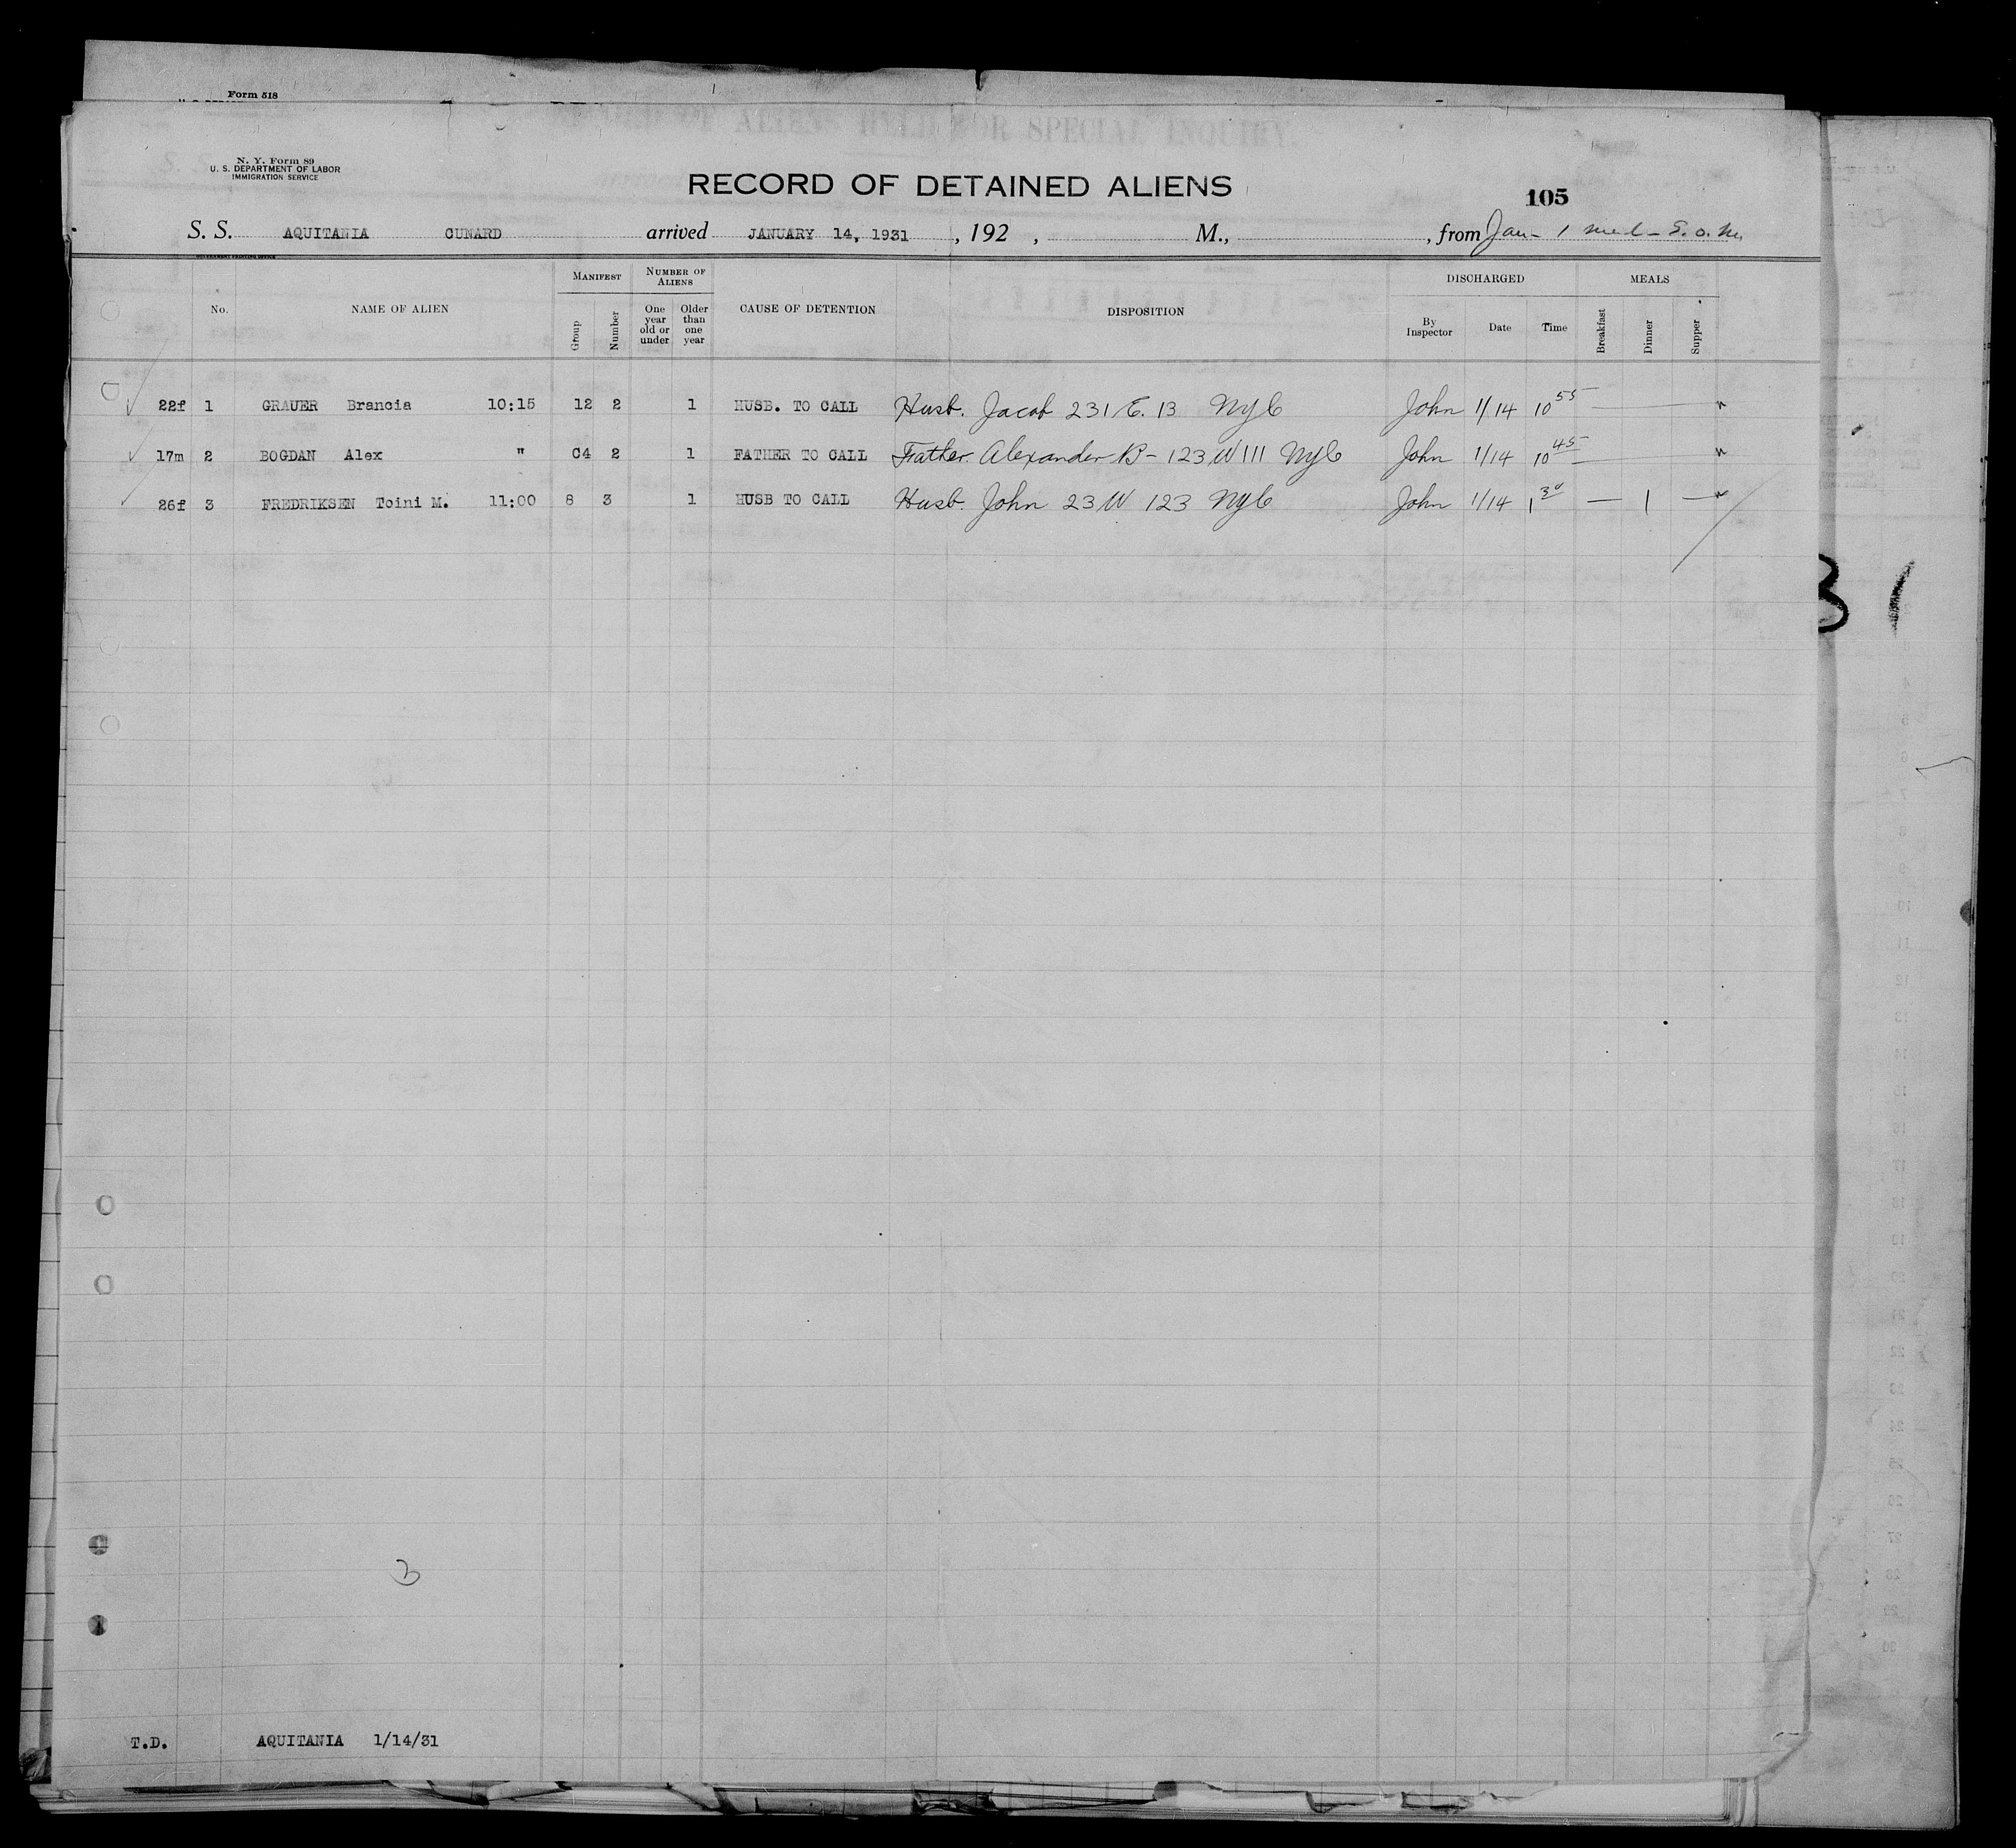 Form 518
RECORD OF ALIENS HELD FOR SPECIAL INQUIRY.
N. Y. Form 89
U. S. DEPARTMENT OF LABOR
IMMIGRATION SERVICE
RECORD OF DETAINED ALIENS
105
S. S. AQUITANIA CUNARD arrived JANUARY 14, 1931 , 192 , M., , from Jan - 1 meal - S.o.M.
GOVERNMENT PRINTING OFFICE
No. NAME OF ALIEN MANIFEST Group Number NUMBER OF ALIENS One year old or under Older than one year CAUSE OF DETENTION DISPOSITION DISCHARGED By Inspector Date Time MEALS Breakfast Dinner Supper
22f 1 GRAUER Brancia 10:15 12 2 1 HUSB. TO CALL Husb. Jacob 231 E. 13 NyC John 1/14 10 55 —
17m 2 BOGDAN Alex " C4 2 1 FATHER TO CALL Father. Alexander B - 123 W 111 NyC John 1/14 10 45 —
26f 3 FREDRIKSEN Toini M. 11:00 8 3 1 HUSB TO CALL Husb. John 23 W 123 NyC John 1/14 1 30 — 1 —
31
3
T.D. AQUITANIA 1/14/31